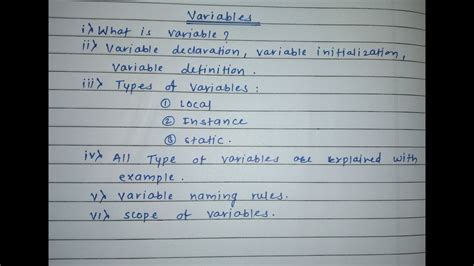 Variables
i) What is variable?
ii) Variable declaration, variable initialization,
variable definition.
iii) Types of variables:
① Local
② Instance
③ static.
iv) All Type of variables are explained with
example.
v) variable naming rules.
vi) scope of variables.